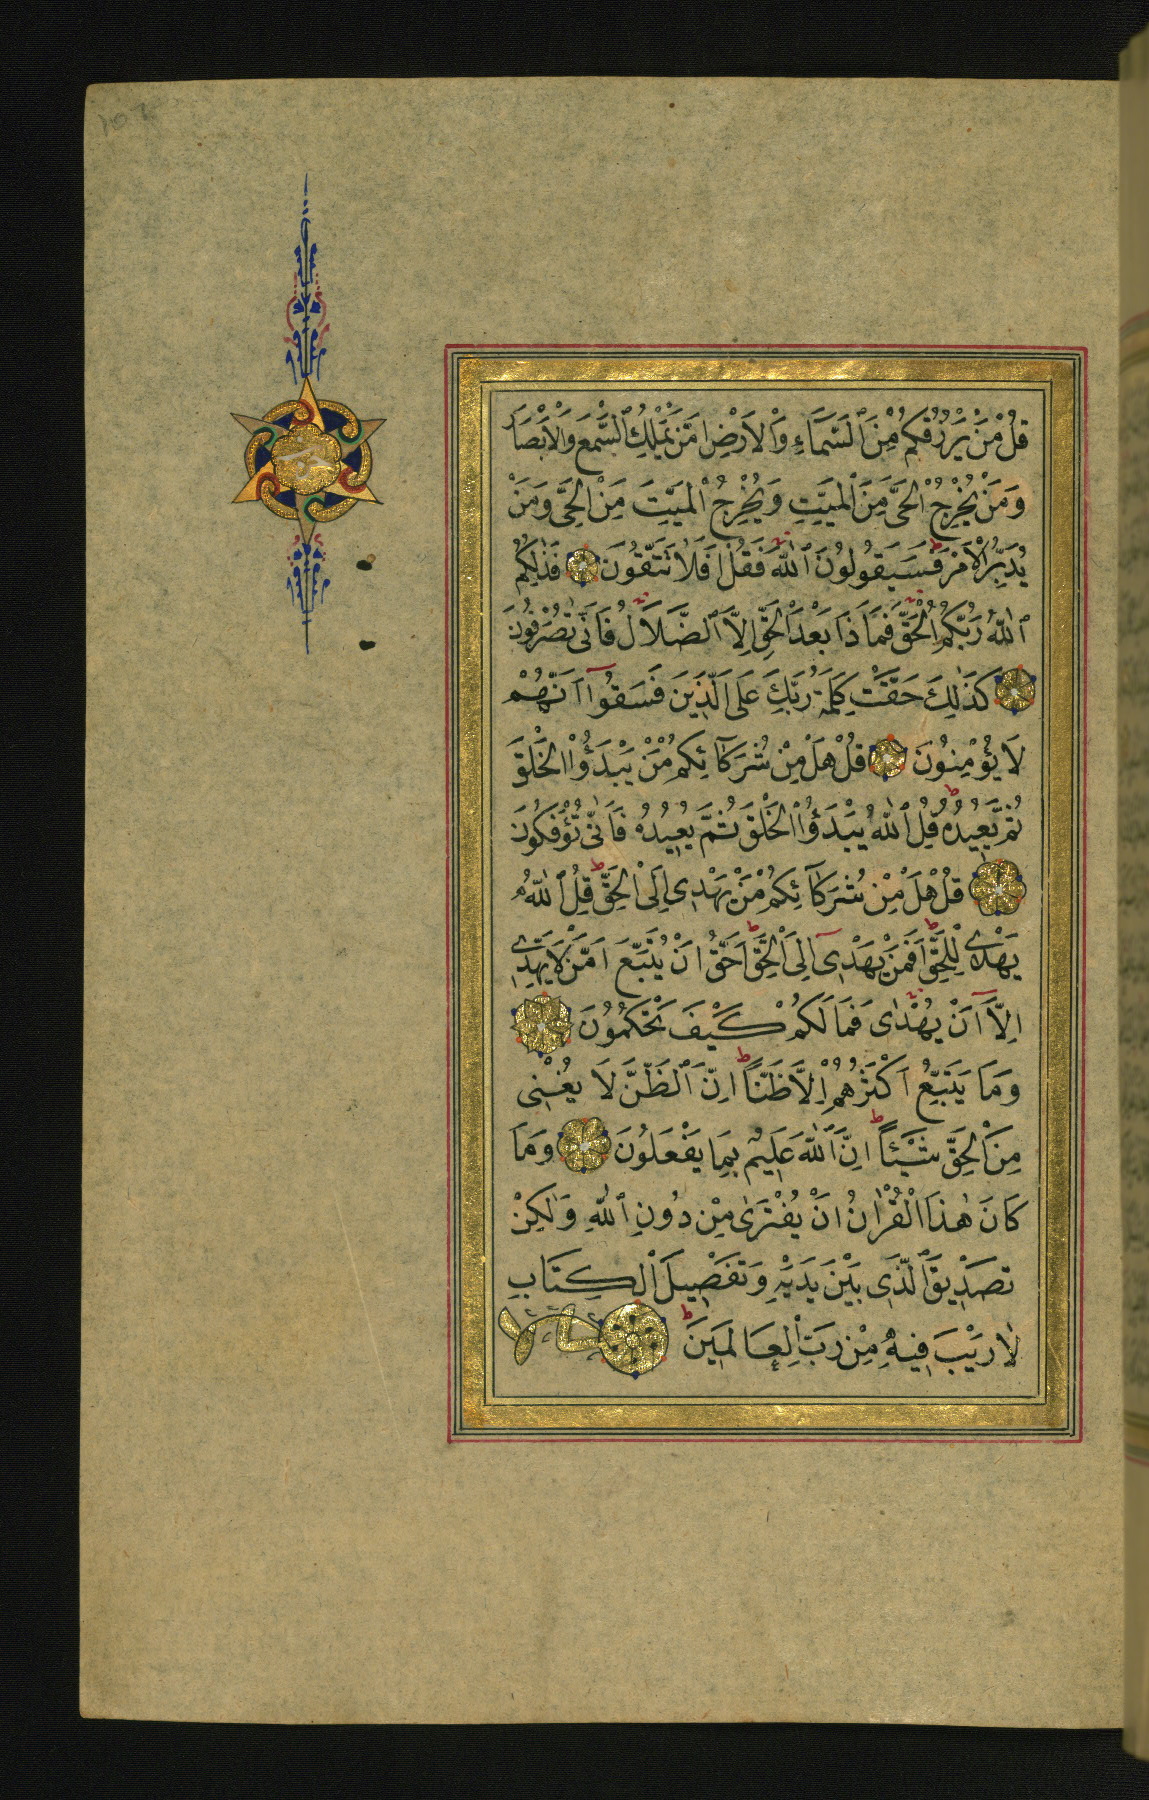 قُلْ مَنْ يَرْزُقُكُمْ مِنَ ٱلسَّمَآءِ وَٱلْاَرْضِ اَمَّنْ يَمْلِكُ ٱلسَّمْعَ وَٱلْاَبْصَارَ
وَمَنْ يُخْرِجُ ٱلْحَىَّ مِنَ ٱلْمَيِّتِ وَيُخْرِجُ ٱلْمَيِّتَ مِنَ ٱلْحَىِّ وَمَنْ
يُدَبِّرُ ٱلْاَمْرَ فَسَيَقُولُونَ ٱللّٰهُ فَقُلْ اَفَلَا تَتَّقُونَ فَذٰلِكُمُ
ٱللّٰهُ رَبُّكُمُ ٱلْحَقُّ فَمَا ذَا بَعْدَ ٱلْحَقِّ اِلَّا ٱلضَّلَالُ فَاَنّٰى تُصْرَفُونَ
كَذٰلِكَ حَقَّتْ كَلِمَةُ رَبِّكَ عَلَى ٱلَّذِينَ فَسَقُوٓا اَنَّهُمْ
لَا يُؤْمِنُونَ قُلْ هَلْ مِنْ شُرَكَآئِكُمْ مَنْ يَبْدَؤُا ٱلْخَلْقَ
ثُمَّ يُعِيدُهُ قُلِ ٱللّٰهُ يَبْدَؤُا ٱلْخَلْقَ ثُمَّ يُعِيدُهُ فَاَنّٰى تُؤْفَكُونَ
قُلْ هَلْ مِنْ شُرَكَآئِكُمْ مَنْ يَهْدِى اِلَى ٱلْحَقِّ قُلِ ٱللّٰهُ
يَهْدِى لِلْحَقِّ اَفَمَنْ يَهْدِىٓ اِلَى ٱلْحَقِّ اَحَقُّ اَنْ يُتَّبَعَ اَمَّنْ لَا يَهِدِّى
اِلَّآ اَنْ يُهْدٰى فَمَا لَكُمْ كَيْفَ تَحْكُمُونَ
وَمَا يَتَّبِعُ اَكْثَرُهُمْ اِلَّا ظَنًّا اِنَّ ٱلظَّنَّ لَا يُغْنِى
مِنَ ٱلْحَقِّ شَيْئًا اِنَّ ٱللّٰهَ عَلِيمٌ بِمَا يَفْعَلُونَ وَمَا
كَانَ هٰذَا ٱلْقُرْاٰنُ اَنْ يُفْتَرٰى مِنْ دُونِ ٱللّٰهِ وَلٰكِنْ
تَصْدِيقَ ٱلَّذِى بَيْنَ يَدَيْهِ وَتَفْصِيلَ ٱلْكِتَابِ
لَا رَيْبَ فِيهِ مِنْ رَبِّ ٱلْعَالَمِينَ